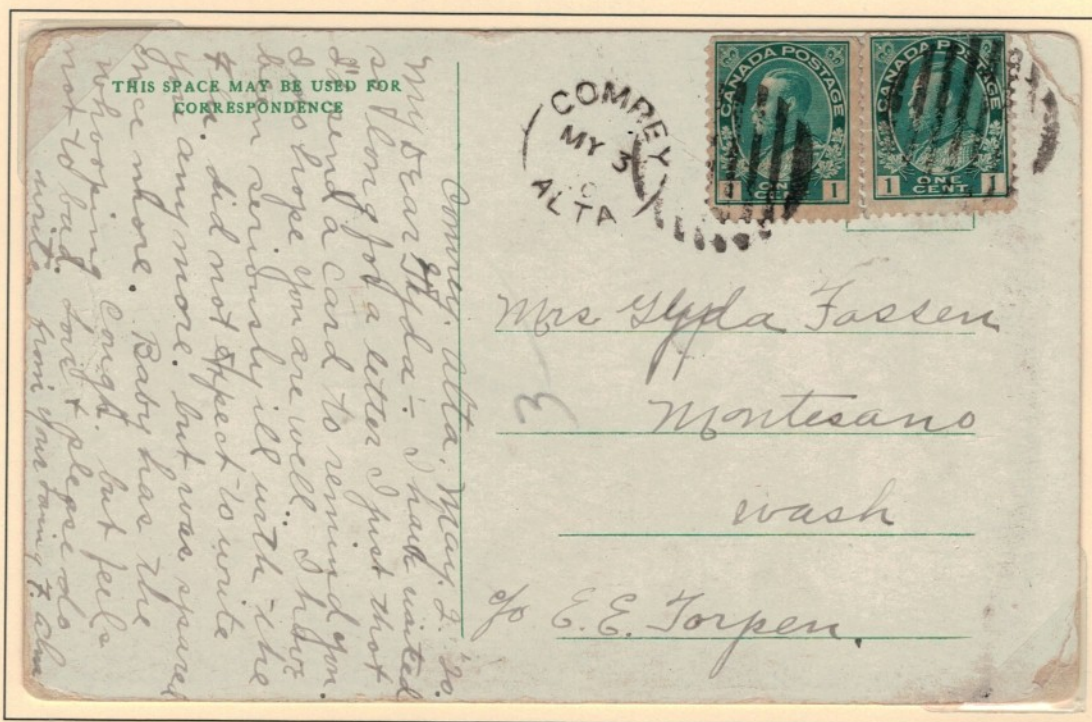 THIS SPACE MAY BE USED FOR
CORRESPONDENCE
Comrey. Alta. May. 2. '20.
My Dear Glyda:- I have waited
so long for a letter I just thot
I'd send a card to remind you.
I do hope you are well. I have
been seriously ill with the
Flu. did not expect to write
you anymore. but was spared
once more. Baby has the
whooping cough. but feels
not to bad. Love & please do
write. from your loving
COMREY
MY 3
ALTA
CANADA POSTAGE
ONE
CENT
1 1
CANADA POSTAGE
ONE
CENT
1 1
Mrs Glyda Fossen
Montesano
wash
c/o E.E. Torpen.
3